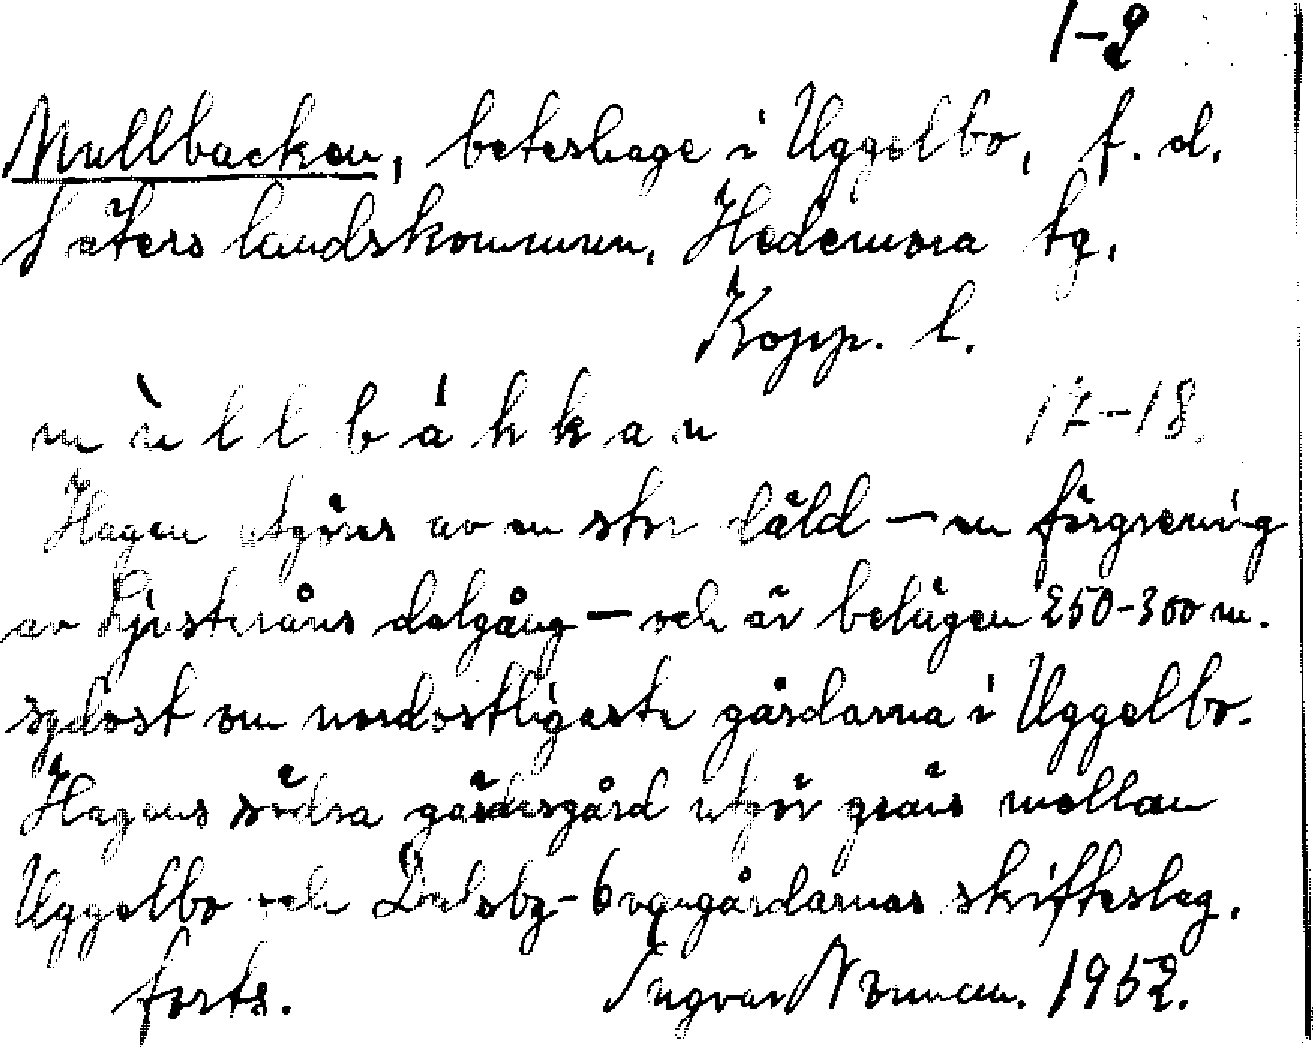 1-2
Mullbacken, beteshage i Uggelbo, f. d.
Säters landskommun, Hedemora tg.
Kopp. l.
m ù l l b á k k a n 17-18.
Hagen utgöres av en stor däld – en förgrening
av Ljusteråns dalgång – och är belägen 250-300 m.
sydost om nordostligaste gårdarna i Uggelbo.
Hagens södra gärdesgård utgör gräns mellan
Uggelbo och Dalsby- skifteslag.
forts. Ingvar Norman. 1952.